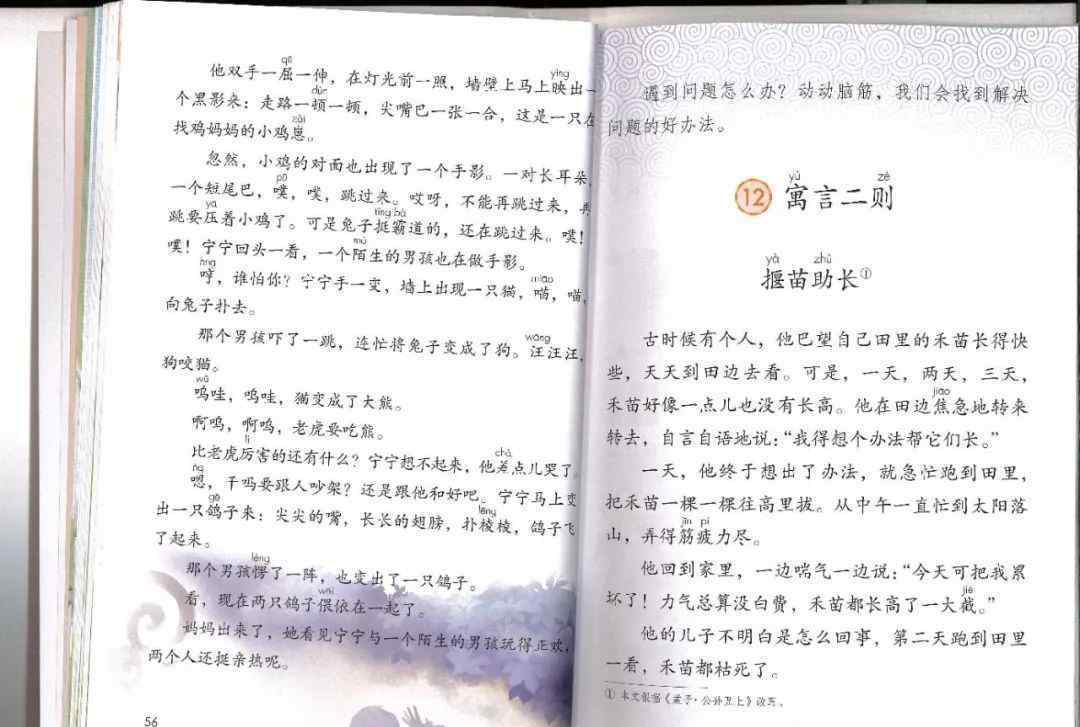 qū
他双手一屈一伸，在灯光前一照，墙壁上马上映出一
yìng
个黑影来：走路一顿一顿，尖嘴巴一张一合，这是一只在
dùn
找鸡妈妈的小鸡崽。
zǎi
忽然，小鸡的对面也出现了一个手影。一对长耳朵，
一个短尾巴，噗，噗，跳过来。哎呀，不能再跳过来，再
pū
跳要压着小鸡了。可是兔子挺霸道的，还在跳过来。噗！
yā
tǐng bà
噗！宁宁回头一看，一个陌生的男孩也在做手影。
mò
哼，谁怕你？宁宁手一变，墙上出现一只猫，喵，喵，
hng
miāo
向兔子扑去。
那个男孩吓了一跳，连忙将兔子变成了狗。汪汪汪，
wāng
狗咬猫。
呜哇，呜哇，猫变成了大熊。
wū
啊呜，啊呜，老虎要吃熊。
比老虎厉害的还有什么？宁宁想不起来，他差点儿哭了。
lì
chà
嗯，干吗要跟人吵架？还是跟他和好吧。宁宁马上变
ńg
出一只鸽子来：尖尖的嘴，长长的翅膀，扑棱棱，鸽子飞
gē
lēng
了起来。
那个男孩愣了一阵，也变出了一只鸽子。
lèng
看，现在两只鸽子偎依在一起了。
wēi
妈妈出来了，她看见宁宁与一个陌生的男孩玩得正欢，
两个人还挺亲热呢。
56
遇到问题怎么办？动动脑筋，我们会找到解决
问题的好办法。
yù zé
12 寓言二则
yà zhù
揠苗助长①
古时候有个人，他巴望自己田里的禾苗长得快
些，天天到田边去看。可是，一天，两天，三天，
禾苗好像一点儿也没有长高。他在田边焦急地转来
jiāo
转去，自言自语地说：“我得想个办法帮它们长。”
一天，他终于想出了办法，就急忙跑到田里，
把禾苗一棵一棵往高里拔。从中午一直忙到太阳落
山，弄得筋疲力尽。
jīn pí
他回到家里，一边喘气一边说：“今天可把我累
坏了！力气总算没白费，禾苗都长高了一大截。”
jié
他的儿子不明白是怎么回事，第二天跑到田里
一看，禾苗都枯死了。
① 本文根据《孟子·公孙丑上》改写。